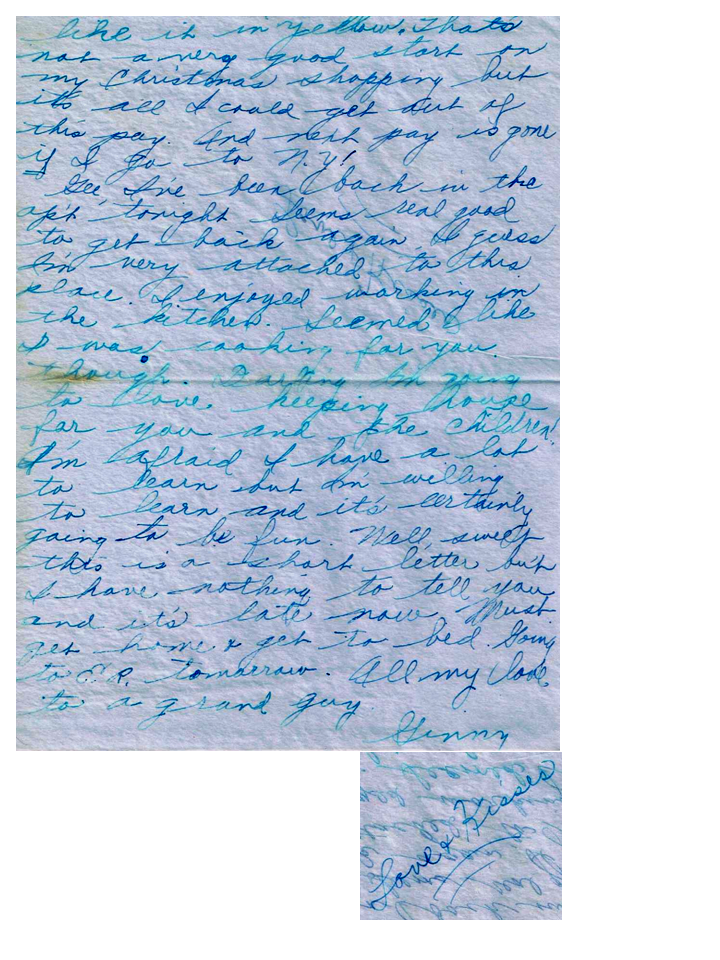 like it in yellow. Thats
not a very good start on
my Christmas shopping but
its all I could get out of
this pay. And next pay is gone
if I go to N.Y!
Gee I've been back in the
apt tonight. Seems real good
to get back again. I guess
I'm very attached to this
place. I enjoyed working in
the kitchen. Seemed like
I was cooking for you
though. Darling I'm going
to love keeping house
for you and the children!
I'm afraid I have a lot
to learn but I'm willing
to learn and it's certainly
going to be fun. Well sweet
this is a short letter but
I have nothing to tell you
and it's late now. Must
get home & get to bed. Going
to E.R. tomorrow. All my love
to a grand guy.
Ginny
Love & Kisses